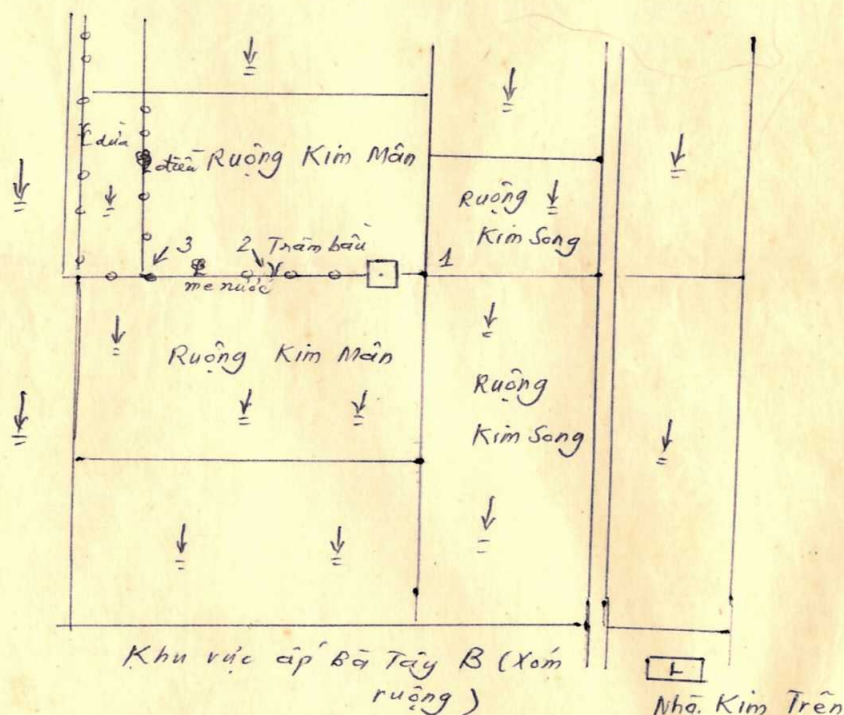 dừa
điền Ruộng Kim Mân
Ruộng
Kim Song
3
2 Trâm bầu
1
me nước
Ruộng Kim Mân
Ruộng
Kim Song
Khu vực ấp Bà Tây B (Xóm
ruộng)
L
Nhà Kim Trên